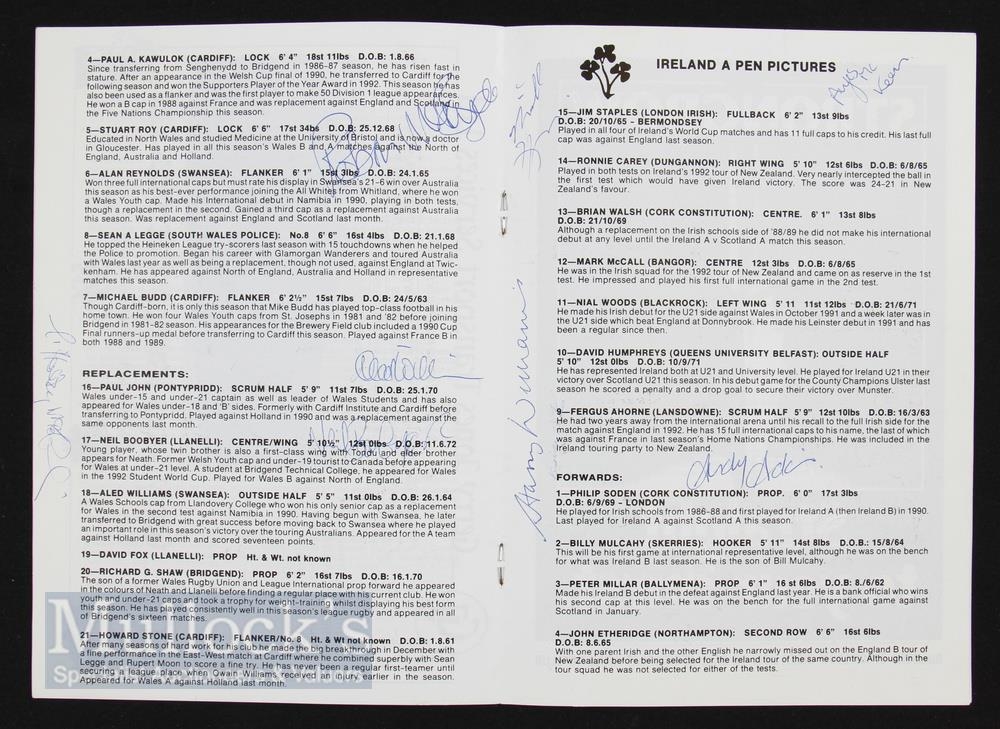 4—PAUL A. KAWULOK (CARDIFF): LOCK 6' 4" 18st 11lbs D.O.B: 1.8.66
Since transferring from Senghenydd to Bridgend in 1986-87 season, he has risen fast in
stature. After an appearance in the Welsh Cup final of 1990, he transferred to Cardiff for the
following season and won the Supporters Player of the Year Award in 1992. This season he has
also been used as a flanker and was the first player to make 50 Division 1 league appearances.
He won a B cap in 1988 against France and was replacement against England and Scotland in
the Five Nations Championship this season.
5—STUART ROY (CARDIFF): LOCK 6' 6" 17st 34lbs D.O.B: 25.12.68
Educated in North Wales and studied Medicine at the University of Bristol and is now a doctor
in Gloucester. Has played in all this season's Wales B and A matches against the North of
England, Australia and Holland.
6—ALAN REYNOLDS (SWANSEA): FLANKER 6' 1" 15st 3lbs D.O.B: 24.1.65
Won three full international caps but must rate his display in Swansea's 21-6 win over Australia
this season as his best-ever performance joining the All Whites from Whitland, where he won
a Wales Youth cap. Made his International debut in Namibia in 1990, playing in both tests,
though a replacement in the second. Gained a third cap as a replacement against Australia
this season. Was replacement against England and Scotland last month.
8—SEAN A LEGGE (SOUTH WALES POLICE): No.8 6' 6" 16st 4lbs D.O.B: 21.1.68
He topped the Heineken League try-scorers last season with 15 touchdowns when he helped
the Police to promotion. Began his career with Glamorgan Wanderers and toured Australia
with Wales last year as well as being a replacement, though not used, against England at Twic-
kenham. He has appeared against North of England, Australia and Holland in representative
matches this season.
7—MICHAEL BUDD (CARDIFF): FLANKER 6' 2½" 15st 7lbs D.O.B: 24/5/63
Though Cardiff-born, it is only this season that Mike Budd has played top-class football in his
home town. He won four Wales Youth caps from St. Josephs in 1981 and '82 before joining
Bridgend in 1981-82 season. His appearances for the Brewery Field club included a 1990 Cup
Final runners-up medal before transferring to Cardiff this season. Played against France B in
both 1988 and 1989.
REPLACEMENTS:
16—PAUL JOHN (PONTYPRIDD): SCRUM HALF 5' 9" 11st 7lbs D.O.B: 25.1.70
Wales under-15 and under-21 captain as well as leader of Wales Students and has also
appeared for Wales under-18 and 'B' sides. Formerly with Cardiff Institute and Cardiff before
transferring to Pontypridd. Played against Holland in 1990 and was a replacement against the
same opponents last month.
17—NEIL BOOBYER (LLANELLI): CENTRE/WING 5' 10½" 12st 0lbs D.O.B: 11.6.72
Young player, whose twin brother is also a first-class wing with Tondu and elder brother
appears for Neath. Former Welsh Youth cap and under-19 tourist to Canada before appearing
for Wales at under-21 level. A student at Bridgend Technical College, he appeared for Wales
in the 1992 Student World Cup. Played for Wales B against North of England.
18—ALED WILLIAMS (SWANSEA): OUTSIDE HALF 5' 5" 11st 0lbs D.O.B: 26.1.64
A Wales Schools cap from Llandovery College who won his only senior cap as a replacement
for Wales in the second test against Namibia in 1990. Having begun with Swansea, he later
transferred to Bridgend with great success before moving back to Swansea where he played
an important role in this season's victory over the touring Australians. Appeared for the A team
against Holland last month and scored seventeen points.
19—DAVID FOX (LLANELLI): PROP Ht. & Wt. not known
20—RICHARD G. SHAW (BRIDGEND): PROP 6' 2" 16st 7lbs D.O.B: 16.1.70
The son of a former Wales Rugby Union and League International prop forward he appeared
in the colours of Neath and Llanelli before finding a regular place with his current club. He won
youth and under-21 caps and took a trophy for weight-training whilst displaying his best form
this season. He has played consistently well in this season's league rugby and appeared in all
of Bridgend's sixteen matches.
21—HOWARD STONE (CARDIFF): FLANKER/No. 8 Ht. & Wt not known D.O.B: 1.8.61
After many seasons of hard work for his club he made the big breakthrough in December with
a fine performance in the East-West match at Cardiff where he combined superbly with Sean
Legge and Rupert Moon to score a fine try. He has never been a regular first-teamer until
securing a league place when Owain Williams received an injury earlier in the season.
Appeared for Wales A against Holland last month.
Mullock's
IRELAND A PEN PICTURES
15—JIM STAPLES (LONDON IRISH): FULLBACK 6' 2" 13st 9lbs
D.O.B: 20/10/65 - BERMONDSEY
Played in all four of Ireland's World Cup matches and has 11 full caps to his credit. His last full
cap was against England last season.
14—RONNIE CAREY (DUNGANNON): RIGHT WING 5' 10" 12st 6lbs D.O.B: 6/8/65
Played in both tests on Ireland's 1992 tour of New Zealand. Very nearly intercepted the ball in
the first test which would have given Ireland victory. The score was 24-21 in New
Zealand's favour.
13—BRIAN WALSH (CORK CONSTITUTION): CENTRE. 6' 1" 13st 8lbs
D.O.B: 21/10/69
Although a replacement on the Irish schools side of '88/89 he did not make his international
debut at any level until the Ireland A v Scotland A match this season.
12—MARK McCALL (BANGOR): CENTRE 12st 3lbs D.O.B: 6/8/65
He was in the Irish squad for the 1992 tour of New Zealand and came on as reserve in the 1st
test. He impressed and played his first full international game in the 2nd test.
11—NIAL WOODS (BLACKROCK): LEFT WING 5' 11 11st 12lbs D.O.B: 21/6/71
He made his Irish debut for the U21 side against Wales in October 1991 and a week later was in
the U21 side which beat England at Donnybrook. He made his Leinster debut in 1991 and has
been a regular since then.
10—DAVID HUMPHREYS (QUEENS UNIVERSITY BELFAST): OUTSIDE HALF
5' 10" 12st 0lbs D.O.B: 10/9/71
He has represented Ireland both at U21 and University level. He played for Ireland U21 in their
victory over Scotland U21 this season. In his debut game for the County Champions Ulster last
season he scored a penalty and a drop goal to secure their victory over Munster.
9—FERGUS AHORNE (LANSDOWNE): SCRUM HALF 5' 9" 12st 10lbs D.O.B: 16/3/63
He had two years away from the international arena until his recall to the full Irish side for the
match against England in 1992. He has 15 full international caps to his name, the last of which
was against France in last season's Home Nations Championships. He was included in the
Ireland touring party to New Zealand.
FORWARDS:
1—PHILIP SODEN (CORK CONSTITUTION): PROP. 6' 0" 17st 3lbs
D.O.B: 6/9/69 - LONDON
He played for Irish schools from 1986-88 and first played for Ireland A (then Ireland B) in 1990.
Last played for Ireland A against Scotland A this season.
2—BILLY MULCAHY (SKERRIES): HOOKER 5' 11" 14st 8lbs D.O.B: 15/8/64
This will be his first game at international representative level, although he was on the bench
for what was Ireland B last season. He is the son of Bill Mulcahy.
3—PETER MILLAR (BALLYMENA): PROP 6' 1" 16 st 6lbs D.O.B: 8./6/62
Made his Ireland B debut in the defeat against England last year. He is a bank official who wins
his second cap at this level. He was on the bench for the full international game against
Scotland in January.
4—JOHN ETHERIDGE (NORTHAMPTON): SECOND ROW 6' 6" 16st 6lbs
D.O.B: 8.6.65
With one parent Irish and the other English he narrowly missed out on the England B tour of
New Zealand before being selected for the Ireland tour of the same country. Although in the
tour squad he was not selected for either of the tests.